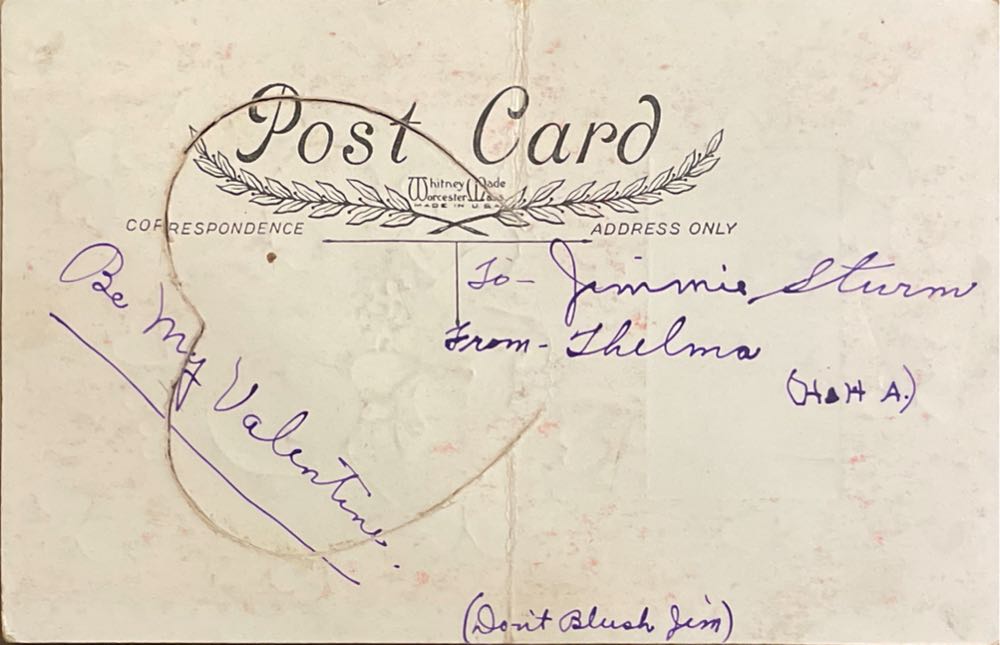 Post Card
Whitney Made
Worcester Mass
MADE IN U.S.A.
CORRESPONDENCE
ADDRESS ONLY
Be My Valentine.
To- Jimmie Sturm
From- Thelma
(H&H A.)
(Don't Blush Jim)